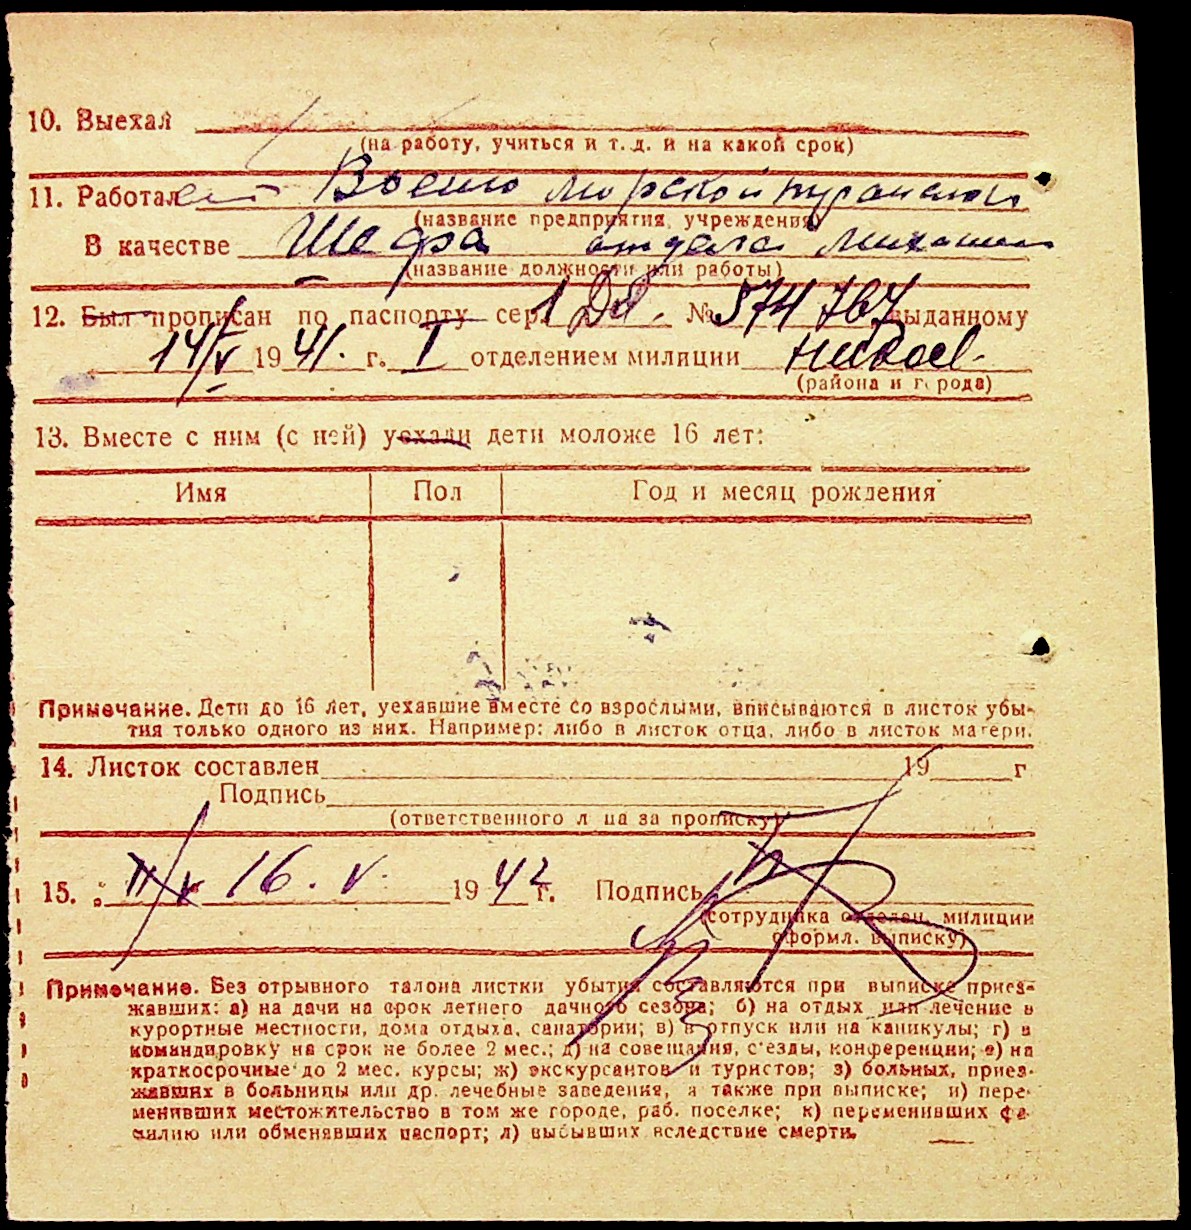 10. Выехал
(на работу, учиться и т. д. и на какой срок)
11. Работает Военно морской
(название предприятия, учреждения)
В качестве Шефа отдела
(название должности или работы)
12. Был прописан по паспорту сер. № 574767 выданному
14/V 1941. г. I отделением милиции Никол.
(района и города)
13. Вместе с ним (с ней) уехали дети моложе 16 лет:
Имя Пол Год и месяц рождения
Примечание. Дети до 16 лет, уехавшие вместе со взрослыми, вписываются в листок убы-
тия только одного из них. Например: либо в листок отца, либо в листок матери.
14. Листок составлен 19 г
Подпись
(ответственного лица за прописку)
15. 16. V. 1942 г. Подпись
(сотрудника отделен. милиции
оформл. выписку)
Примечание. Без отрывного талона листки убытия составляются при выписке приез-
жавших: а) на дачи на срок летнего дачного сезона; б) на отдых или лечение в
курортные местности, дома отдыха, санатории; в) в отпуск или на каникулы; г) в
командировку на срок не более 2 мес.; д) на совещания, с'езды, конференции; е) на
краткосрочные до 2 мес. курсы; ж) экскурсантов и туристов; з) больных, приез-
жавших в больницы или др. лечебные заведения, а также при выписке; и) пере-
менивших местожительство в том же городе, раб. поселке; к) переменивших фа-
милию или обменявших паспорт; л) выбывших вследствие смерти.